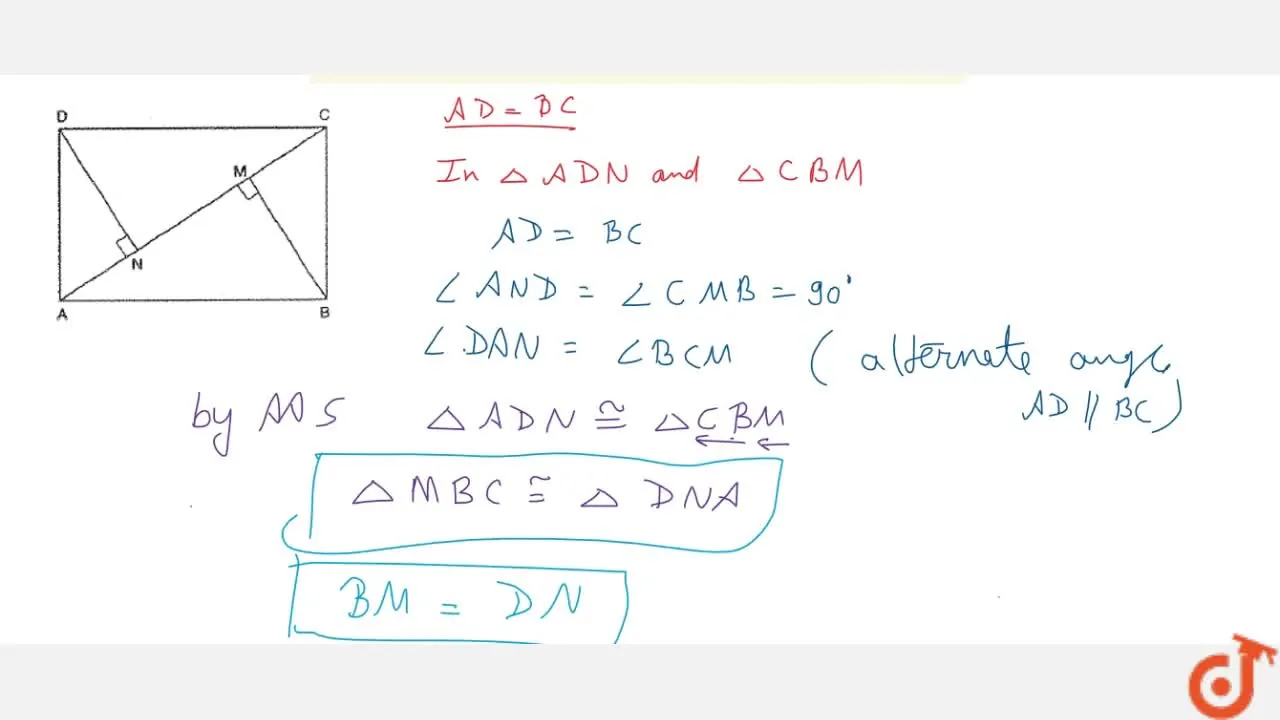 D
C
M
N
A
B
AD = BC
In △ ADN and △ CBM
AD = BC
∠ AND = ∠ CMB = 90°
∠ DAN = ∠ BCM ( alternate
AD ∥ BC )
by AAS △ ADN ≅ △ CBM
△ MBC ≅ △ DNA
BM = DN